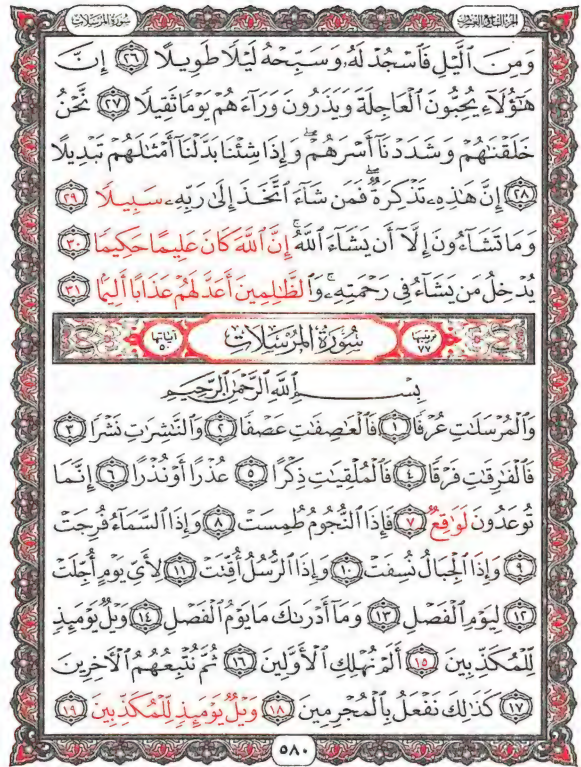 سُورَةُ المُرْسَلَات
الجُزْءُ التَّاسِعُ وَالعِشْرُونَ
وَمِنَ ٱلَّيْلِ فَٱسْجُدْ لَهُۥ وَسَبِّحْهُ لَيْلًا طَوِيلًا ٢٦ إِنَّ
هَٰٓؤُلَآءِ يُحِبُّونَ ٱلْعَاجِلَةَ وَيَذَرُونَ وَرَآءَهُمْ يَوْمًا ثَقِيلًا ٢٧ نَّحْنُ
خَلَقْنَٰهُمْ وَشَدَدْنَآ أَسْرَهُمْ ۖ وَإِذَا شِئْنَا بَدَّلْنَآ أَمْثَٰلَهُمْ تَبْدِيلًا
٢٨ إِنَّ هَٰذِهِۦ تَذْكِرَةٌ ۖ فَمَن شَآءَ ٱتَّخَذَ إِلَىٰ رَبِّهِۦ سَبِيلًا ٢٩
وَمَا تَشَآءُونَ إِلَّآ أَن يَشَآءَ ٱللَّهُ ۚ إِنَّ ٱللَّهَ كَانَ عَلِيمًا حَكِيمًا ٣٠
يُدْخِلُ مَن يَشَآءُ فِى رَحْمَتِهِۦ ۚ وَٱلظَّٰلِمِينَ أَعَدَّ لَهُمْ عَذَابًا أَلِيمًۢا ٣١
ترتيبها ٧٧ سُورَةُ المُرْسَلَاتِ آياتها ٥٠
بِسْمِ ٱللَّهِ ٱلرَّحْمَٰنِ ٱلرَّحِيمِ
وَٱلْمُرْسَلَٰتِ عُرْفًا ١ فَٱلْعَٰصِفَٰتِ عَصْفًا ٢ وَٱلنَّٰشِرَٰتِ نَشْرًا ٣
فَٱلْفَٰرِقَٰتِ فَرْقًا ٤ فَٱلْمُلْقِيَٰتِ ذِكْرًا ٥ عُذْرًا أَوْ نُذْرًا ٦ إِنَّمَا
تُوعَدُونَ لَوَٰقِعٌ ٧ فَإِذَا ٱلنُّجُومُ طُمِسَتْ ٨ وَإِذَا ٱلسَّمَآءُ فُرِجَتْ
٩ وَإِذَا ٱلْجِبَالُ نُسِفَتْ ١٠ وَإِذَا ٱلرُّسُلُ أُقِّتَتْ ١١ لِأَىِّ يَوْمٍ أُجِّلَتْ
١٢ لِيَوْمِ ٱلْفَصْلِ ١٣ وَمَآ أَدْرَىٰكَ مَا يَوْمُ ٱلْفَصْلِ ١٤ وَيْلٌ يَوْمَئِذٍ
لِّلْمُكَذِّبِينَ ١٥ أَلَمْ نُهْلِكِ ٱلْأَوَّلِينَ ١٦ ثُمَّ نُتْبِعُهُمُ ٱلْءَاخِرِينَ
١٧ كَذَٰلِكَ نَفْعَلُ بِٱلْمُجْرِمِينَ ١٨ وَيْلٌ يَوْمَئِذٍ لِّلْمُكَذِّبِينَ ١٩
٥٨٠